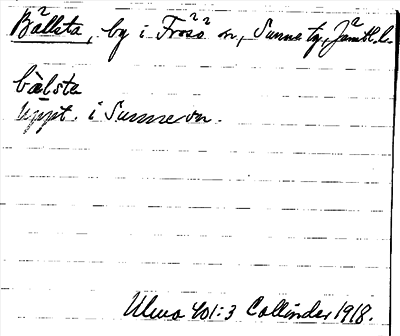 Bällsta, by i Frösö sn, Sunne tg, Jämtl. l.
bälsta
Uppt. i Sunne sn.
Ulma 401:3 Collinder 1918.